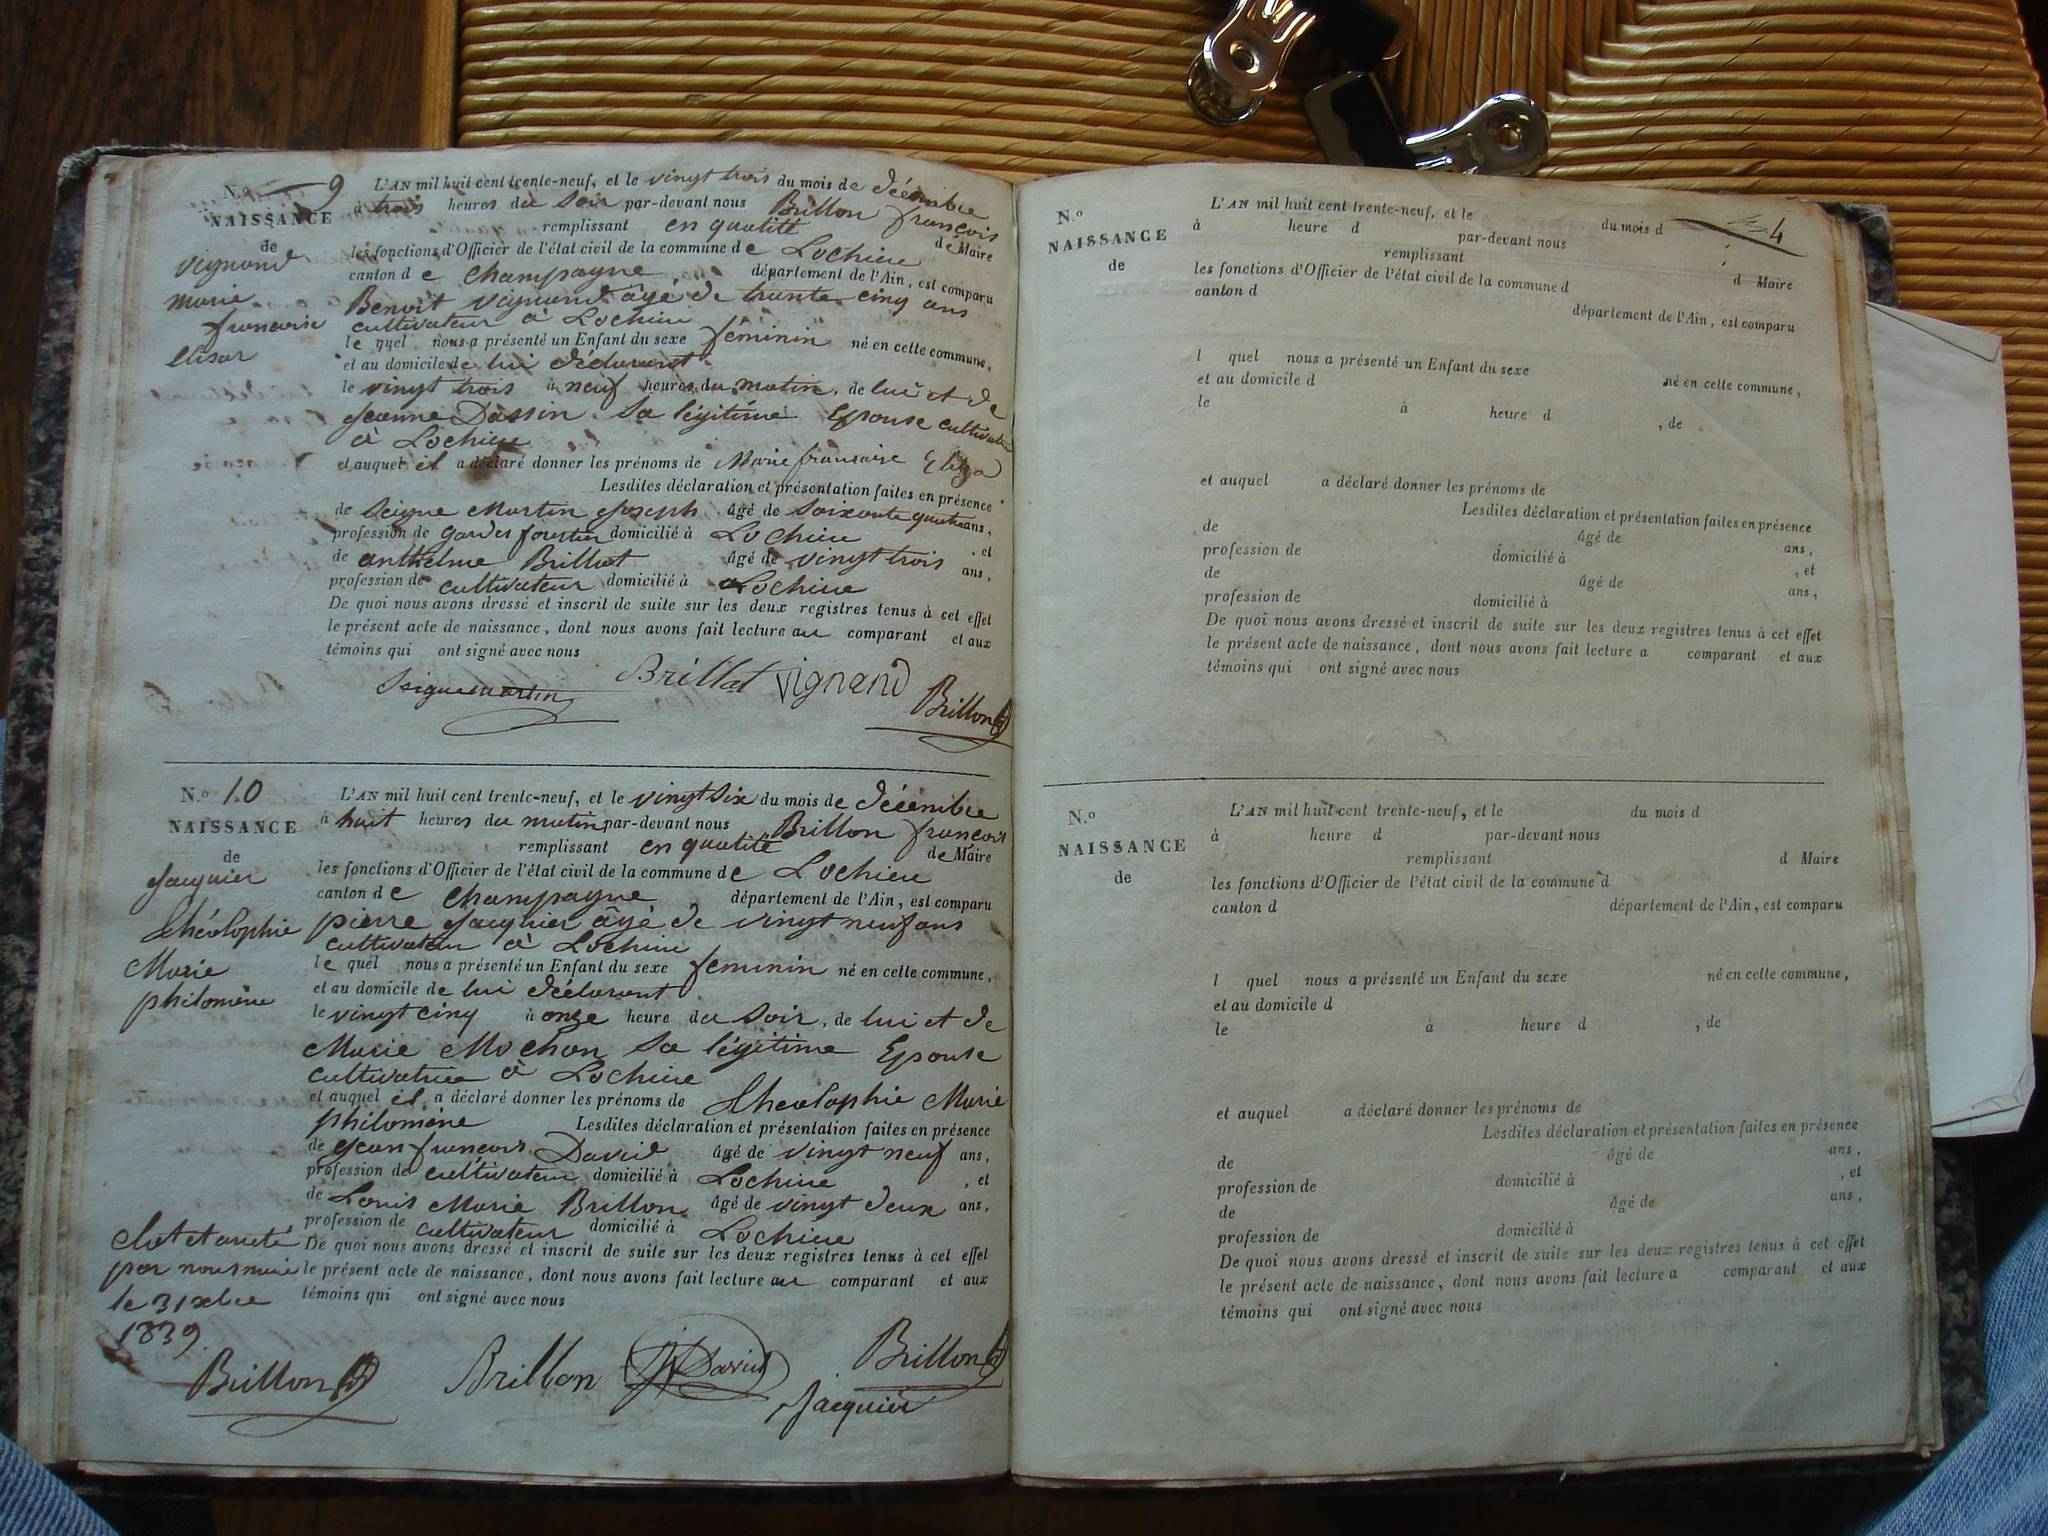 N.º 9
NAISSANCE
de
Vignand
marie
francoise
elisa
L'AN mil huit cent trente-neuf, et le vingt trois du mois de décembre
à trois heures du soir par-devant nous Brillon françois
remplissant en qualité de Maire
les fonctions d'Officier de l'état civil de la commune de Lochieu
canton de champagne département de l'Ain, est comparu
Benoit Vignand âgé de trante cinq ans
cultivateur à Lochieu
le quel nous a présenté un Enfant du sexe féminin né en cette commune,
et au domicile de lui déclarant
le vingt trois à neuf heures du matin, de lui et de
Jeanne Dassin sa légitime Epouse
à Lochieu
et auquel il a déclaré donner les prénoms de Marie francoise Eliza
Lesdites déclaration et présentation faites en présence
de Seigne Martin Joseph âgé de soixante quatre ans,
profession de gardes forestier domicilié à Lochieu, et
de anthelme Brillat âgé de vingt trois ans,
profession de cultivateur domicilié à Lochieu
De quoi nous avons dressé et inscrit de suite sur les deux registres tenus à cet effet
le présent acte de naissance, dont nous avons fait lecture au comparant et aux
témoins qui ont signé avec nous
Seignemartin Brillat Vignand Brillon
N.º 10
NAISSANCE
de
Jacquier
théolophie
Marie
philomène
L'AN mil huit cent trente-neuf, et le vingt six du mois de décembre
à huit heures du matin par-devant nous Brillon françois
remplissant en qualité de Maire
les fonctions d'Officier de l'état civil de la commune de Lochieu
canton de champagne département de l'Ain, est comparu
pierre Jacquier âgé de vingt neuf ans
cultivateur à Lochieu
le quel nous a présenté un Enfant du sexe feminin né en cette commune,
et au domicile de lui déclarant
le vingt cinq à onze heure du soir, de lui et de
Marie Mochon sa légitime Epouse
cultivatrice à Lochieu
et auquel il a déclaré donner les prénoms de theolophie Marie
philomène Lesdites déclaration et présentation faites en présence
de Jean françois David âgé de vingt neuf ans,
profession de cultivateur domicilié à Lochieu, et
de Louis Marie Brillon âgé de vingt deux ans,
profession de cultivateur domicilié à Lochieu
De quoi nous avons dressé et inscrit de suite sur les deux registres tenus à cet effet
le présent acte de naissance, dont nous avons fait lecture au comparant et aux
témoins qui ont signé avec nous
Clot et areté
par nous maire
le 31 xbre
1839
Brillon Brillon David Brillon
Jacquier
4
N.º
NAISSANCE
de
L'AN mil huit cent trente-neuf, et le du mois d
à heure d par-devant nous
remplissant d Maire
les fonctions d'Officier de l'état civil de la commune d
canton d département de l'Ain, est comparu
l quel nous a présenté un Enfant du sexe né en cette commune,
et au domicile d
le à heure d , de
et auquel a déclaré donner les prénoms de
Lesdites déclaration et présentation faites en présence
de âgé de ans,
profession de domicilié à , et
de âgé de ans,
profession de domicilié à
De quoi nous avons dressé et inscrit de suite sur les deux registres tenus à cet effet
le présent acte de naissance, dont nous avons fait lecture a comparant et aux
témoins qui ont signé avec nous
N.º
NAISSANCE
de
L'AN mil huit cent trente-neuf, et le du mois d
à heure d par-devant nous
remplissant d Maire
les fonctions d'Officier de l'état civil de la commune d
canton d département de l'Ain, est comparu
l quel nous a présenté un Enfant du sexe né en cette commune,
et au domicile d
le à heure d , de
et auquel a déclaré donner les prénoms de
Lesdites déclaration et présentation faites en présence
de âgé de ans,
profession de domicilié à , et
de âgé de ans,
profession de domicilié à
De quoi nous avons dressé et inscrit de suite sur les deux registres tenus à cet effet
le présent acte de naissance, dont nous avons fait lecture a comparant et aux
témoins qui ont signé avec nous